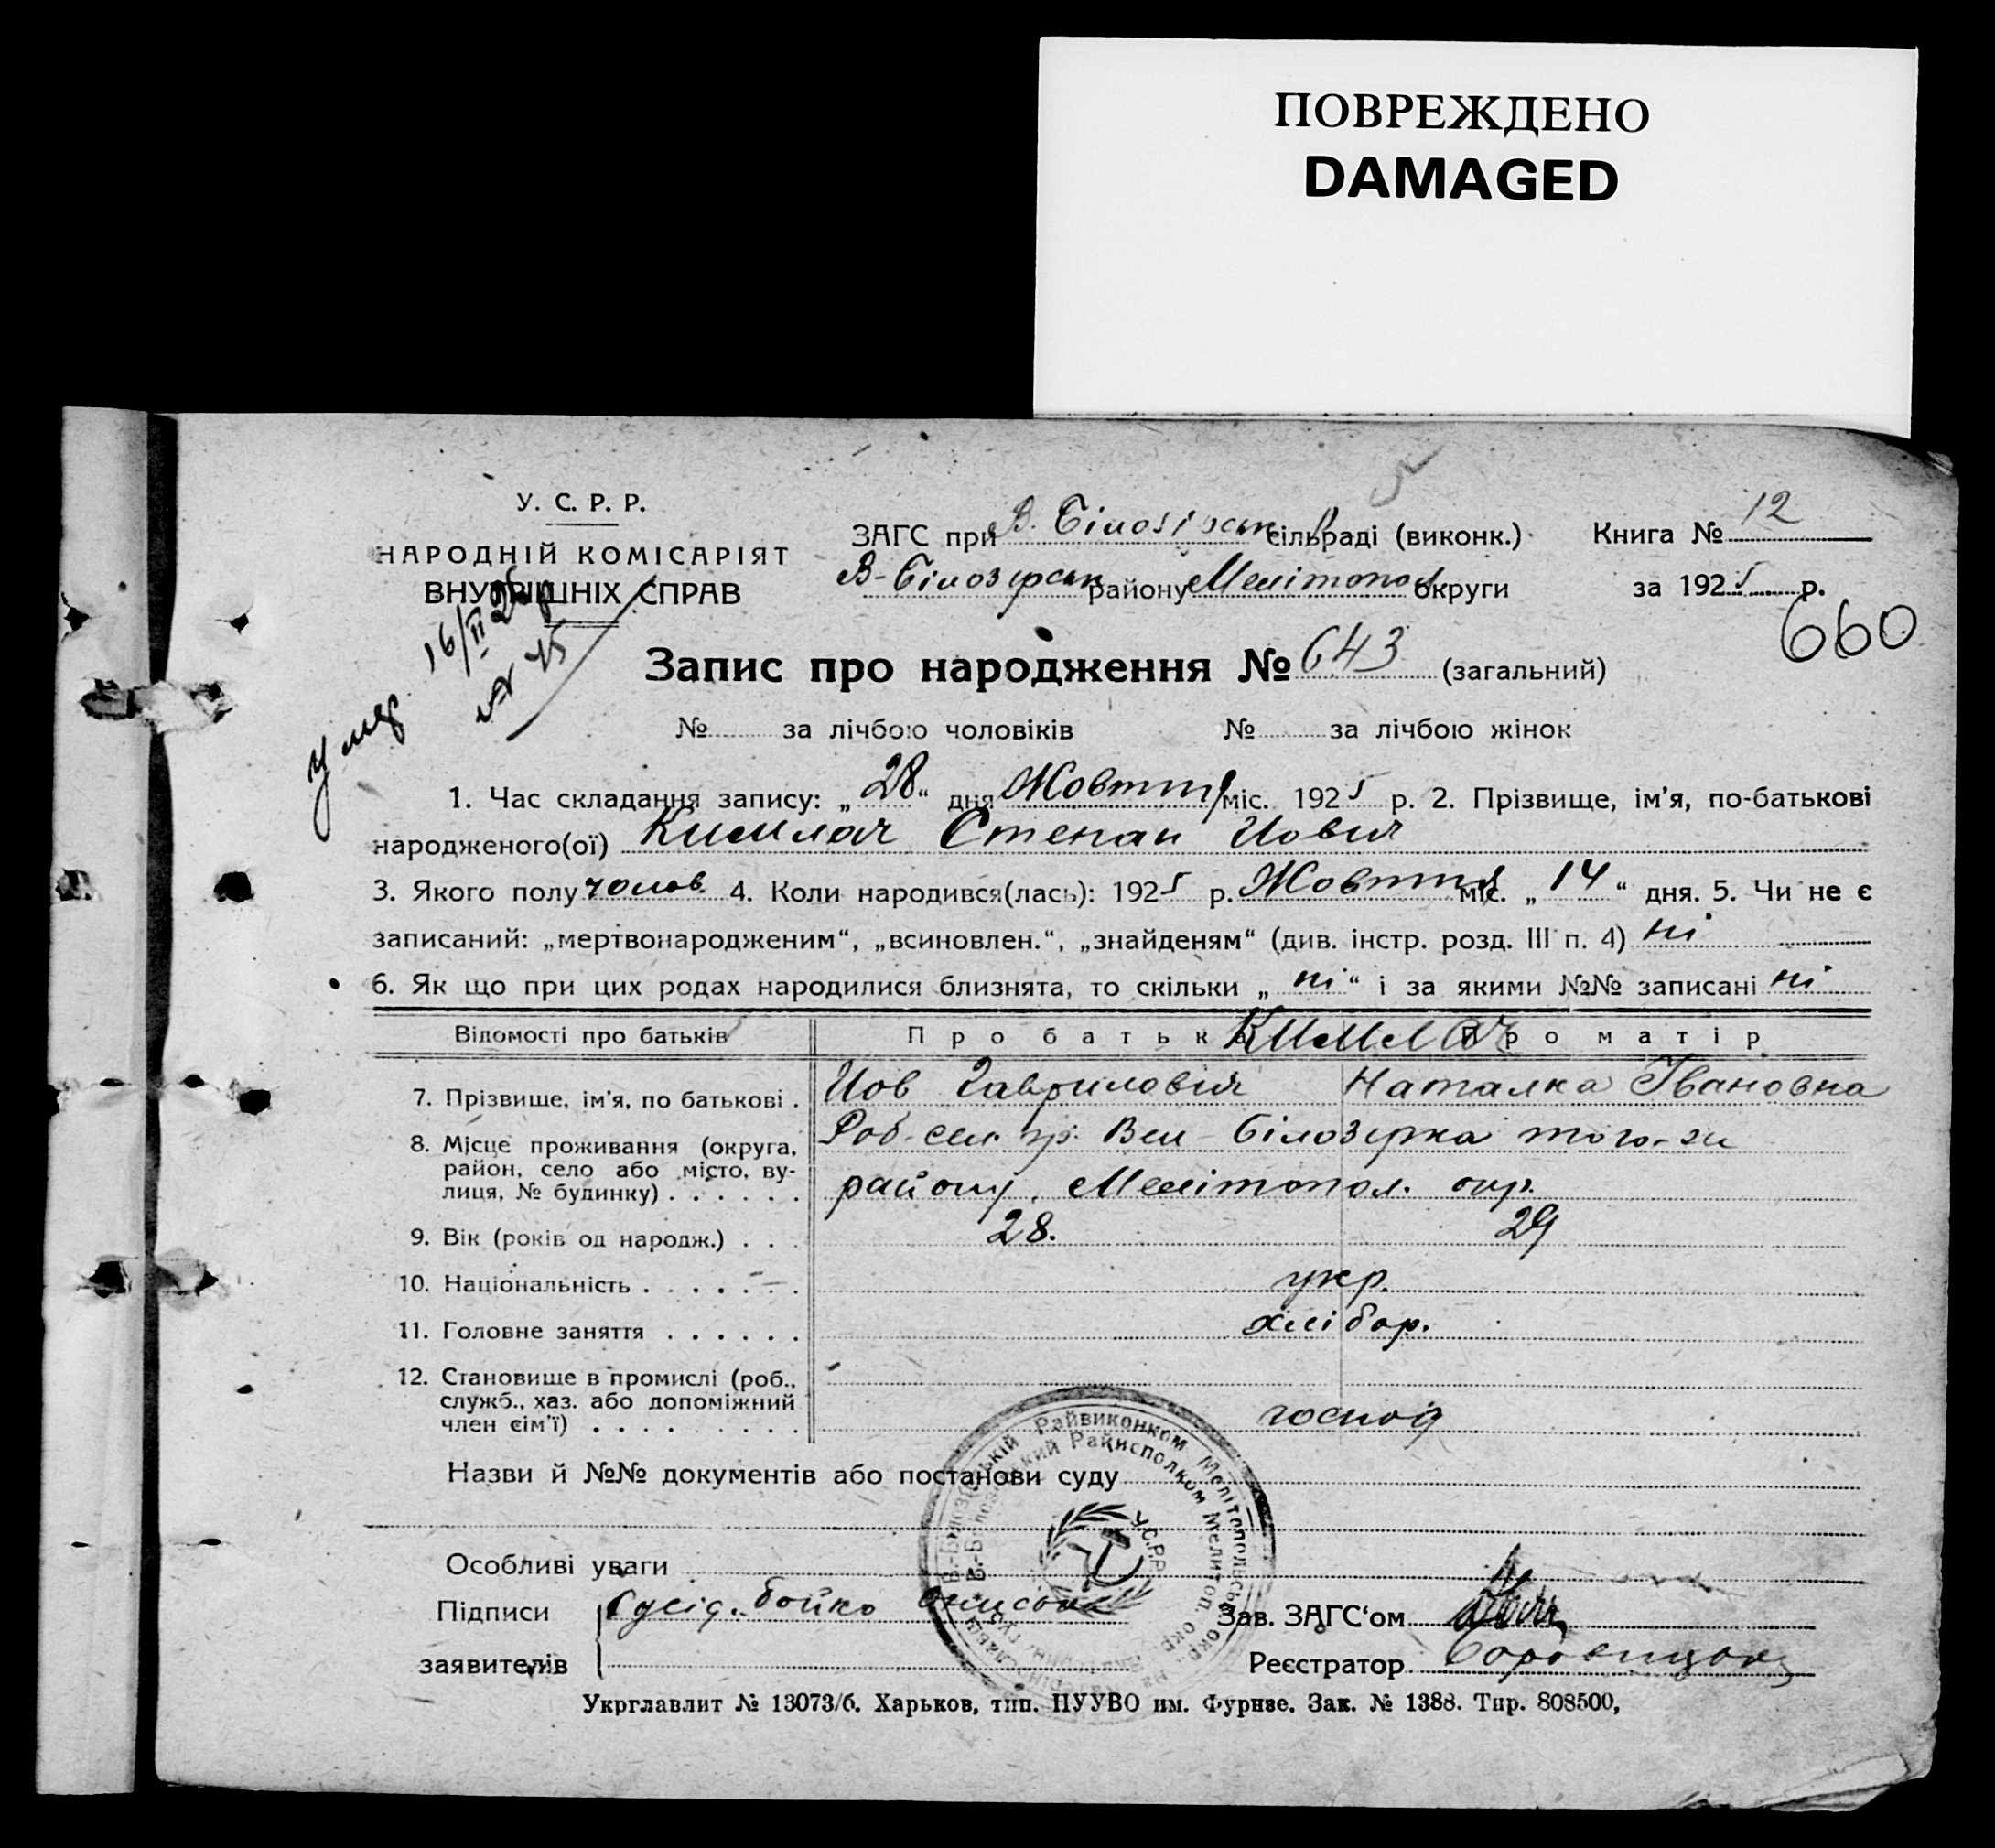 ПОВРЕЖДЕНО
DAMAGED
У. С. Р. Р.
НАРОДНІЙ КОМІСАРІЯТ
ВНУТРІШНІХ СПРАВ
ЗАГС при В. Білозірськ сільраді (виконк.)
Книга № 12
В-Білозірськ району Мелітопол округи
за 1925 р.
660
умер. 16/II 26 р
№ 45
Запис про народження № 643 (загальний)
№ за лічбою чоловіків № за лічбою жінок
1. Час складання запису: „28“ дня Жовтня міс. 1925 р. 2. Прізвище, ім’я, по-батькові
народженого(ої) Кишлач Степан Йович
3. Якого полу чолов. 4. Коли народився(лась): 1925 р. Жовтня міс. „14“ дня. 5. Чи не є
записаний: „мертвонародженим“, „всиновлен.“, „знайденям“ (див. інстр. розд. III п. 4) ні
6. Як що при цих родах народилися близнята, то скільки „ні“ і за якими №№ записані ні
Відомості про батьків Про батька Про матір
7. Прізвище, ім’я, по батькові . Йов Гаврилович Наталка Івановна
8. Місце проживання (округа, Роб-сел. гр. Вел-Білозірка того-ж
район, село або місто, ву-
лиця, № будинку) . . . . . . району, Мелітопол. окр.
9. Вік (років од народж.) . . . 28. 29
10. Національність . . . . . . . укр.
11. Головне заняття . . . . . . хлібор.
12. Становище в промислі (роб.,
служб., хаз. або допоміжний
член сім’ї) . . . . . . . . . господ
Назви й №№ документів або постанови суду
Райвиконком Мелітопольської окр.
Райисполком Мелитоп. окр.
У.С.Р.Р.
Особливі уваги
Підписи Сусід. Бойко
Зав. ЗАГС‘ом
заявителів
Реєстратор
Укрглавлит № 13073/б. Харьков, тип. ЦУУВО им. Фурнзе. Зак. № 1388. Тир. 808500,